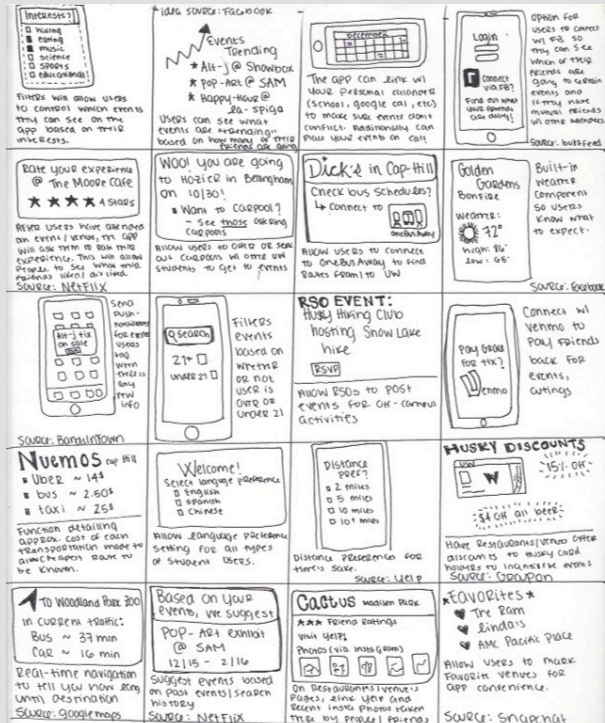 Interests?
hiking
eating
music
science
sports
educational!
Filters will allow users
to control which events
they can see on the
app based on their
interests.
*idea source: Facebook
Events
Trending
* Alt-J @ Showbox
* Pop-Art @ SAM
* Happy-Hour @
la-spiga
Users can see what
events are "trending"
based on how many of their
friends are going
December
The app can link w/
your personal calendar
(school, google cal, etc)
to make sure events don't
conflict. Additionally can
place your event on cal!
Login
Connect
via FB?
Find out what
your friends
are doing!
Option for
users to connect
w/ FB so
they can see
which of their
friends are
going to certain
events and
if they have
mutual friends
w/ other attendees.
Source: buzzfeed
Rate your experience
@ The Moore Cafe
★ ★ ★ ★ 4 Stars
After users have attended
an event/venue, the app
will ask them to rate their
experience. This will allow
people to see what their
friends liked/disliked.
Source: Netflix
WOO! You are going
to Hozier in Bellingham
on 10/30!
Want to carpool?
- See those offering
carpools
Allow users to offer or seek
out carpools w/ other UW
students to get to events
Dick's in Cap-Hill
Check bus schedules?
↳ Connect to
OneBusAway
Allow users to connect
to OneBusAway to find
routes from/to UW
Golden
Gardens
Bonfire
Weather:
72°
high: 86°
low: 65°
Built-in
weather
component
so users
know what
to expect.
Source: Facebook
Alt-J tix
on sale
Send
push-
notifications
for events
users
tag
when
there is
any
new
info
Source: BandsInTown
Search
21+
under 21
Filters
events
based on
whether
or not
user is
over or
under 21
RSO EVENT:
Husky Hiking Club
hosting Snow Lake
hike
RSVP
Allow RSOs to post
events for off-campus
activities
Pay Grace
for tix?
Venmo
Connect w/
Venmo to
pay friends
back for
events,
outings
Nuemos Cap Hill
Uber ~ 14$
bus ~ 2.60$
taxi ~ 25$
Function detailing
approx. cost of each
transportation mode to
allow cheapest route to
be known.
Welcome!
Select language preference
English
Spanish
Chinese
Allow language preference
setting for all types
of student users.
Distance
pref?
2 miles
5 miles
10 miles
10+ miles
Distance preference for
time's sake.
Source: Yelp
HUSKY DISCOUNTS
UW
W
15% Off
$4 Off all beer!
Have restaurants/venues offer
discounts to Husky Card
holders to incentivize events
Source: Groupon
To Woodland Park Zoo
In current traffic:
Bus ~ 37 min
Car ~ 16 min
Real-time navigation
to tell you how long
until destination
Source: googlemaps
Based on your
events, we suggest
POP-Art exhibit
@ SAM
12/15 - 2/16
Suggest events based
on past events/search
history
Source: Netflix
Cactus Madison Park
★★★ Friend Ratings
Visit Yelp?
Photos (via Instagram)
On restaurants/venue's
pages, link Yelp and
recent insta photos taken
there by people/friends
*FAVORITES*
The Ram
Linda's
AMC Pacific Place
Allow users to mark
favorite venues for
app convenience.
Source: Snapchat